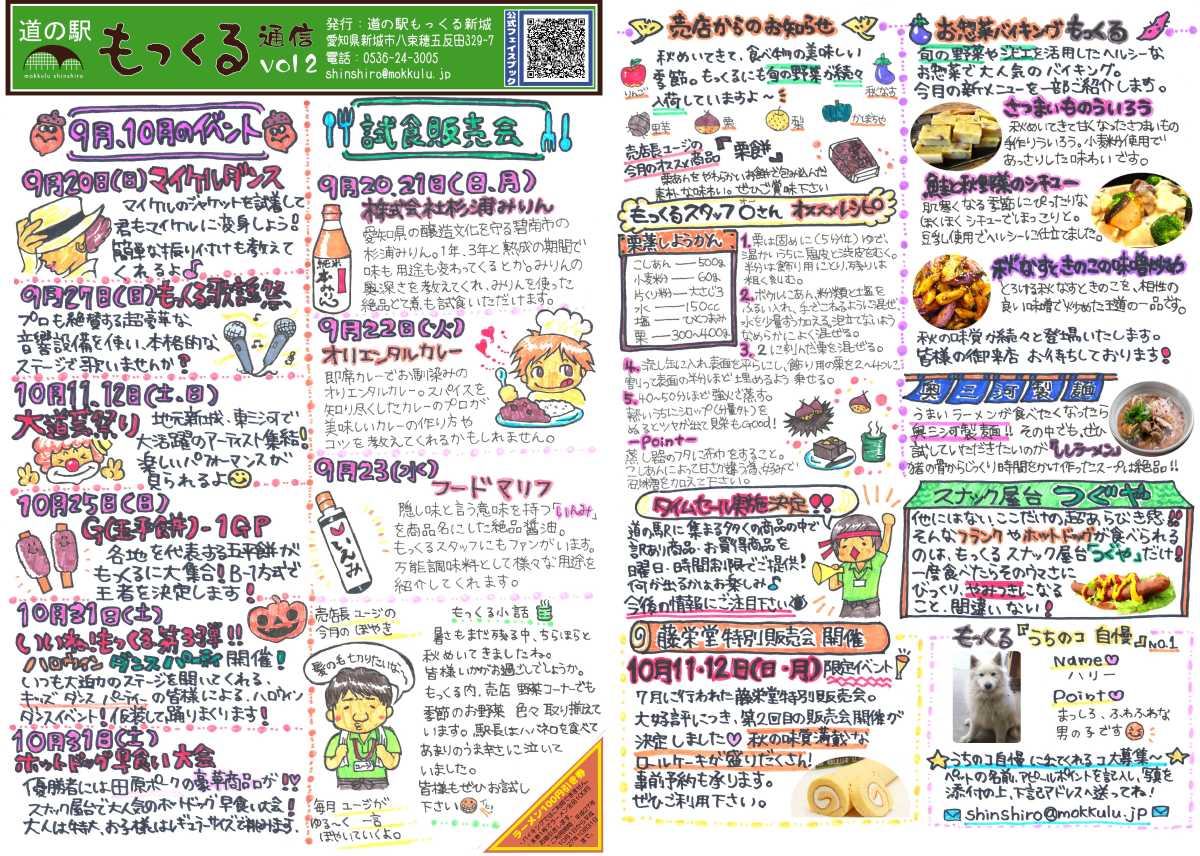 道の駅
mokkulu shinshiro
もっくる 通信
vol 2
発行：道の駅もっくる新城
愛知県新城市八束穂五反田329-7
電話：0536-24-3005
shinshiro@mokkulu.jp
公式フェイスブック
9月、10月のイベント
9月20日(日)マイケルダンス
マイケルのジャケットを試着して
君もマイケルに変身しよう!!
簡単な振り付けも教えて
くれるよ♪
9月27日(日)もっくる歌謡祭
プロも絶賛する超豪華な、
音響設備を使い、本格的な
ステージで歌いませんか？
10月11.12日(土.日)
大道芸祭り
地元新城、東三河で
大活躍のアーティスト集結!
楽しいパフォーマンスが
見られるよ
10月25日(日)
G(五平餅)-1GP
各地を代表する五平餅が
もっくるに大集合! B-1方式で
王者を決定します!
10月31日(土)
いいね!もっくる第3弾!!
ハロウィン ダンスパーティ 開催!
いつも大迫力のステージを開いてくれる、
キッズダンスパーティーの皆様による、ハロウィン
ダンスイベント!仮装して踊りまくります!
10月31日(土)
ホットドッグ早食い大会
優勝者には田原ポークの豪華商品が!!
スナック屋台で大人気のホットドッグ早食い大会!
試食販売会
9月20.21日(日、月)
株式会社杉浦みりん
愛知県の醸造文化を守る碧南市の
杉浦みりん。1年、3年と熟成の期間で
味も用途も変わってくるとか。みりんの
奥深さを教えてくれ、みりんを使った
絶品どて煮も試食いただけます。
純米
本みりん
9月22日(火)
オリエンタルカレー
即席カレーでお馴染みの
オリエンタルカレー。スパイスを
知り尽くしたカレーのプロが
美味しいカレーの作り方や
コツを教えてくれるかもしれません。
9月23(水)
フードマリフ
隠し味と言う意味を持つ「いんみ」
を商品名にした絶品醤油。
もっくるスタッフにもファンがいます。
万能調味料として様々な用途を
紹介してくれます。
いんみ
売店長 ユージの
今月の ぼやき
髪の毛切りたいな、
ユージ
毎月 ユージが
ゆる〜く 一言
ぼやいていくよ。
もっくる小話
暑さもまだ残る中、ちらほらと
秋めいてきましたね。
皆様いかがお過ごしでしょうか。
もっくる内、売店 野菜コーナーでも
季節のお野菜 色々取り揃えて
います。駅長はハバネロを食べて
あまりのうま辛さに泣いて
いました。
皆様もぜひお試し
下さい
ラーメン100円引き券
売店からのお知らせ
秋めいてきて、食べ物の美味しい
季節。もっくるにも旬の野菜が続々
入荷していますよ〜
りんご
秋なす
里芋
栗
梨
かぼちゃ
売店長ユージの
今月のオススメ商品『栗餅』
栗あんをやわらかいお餅で包み込んだ
素朴な味わい。ぜひご賞味下さい
もっくるスタッフ さん オススメレシピ
栗蒸しようかん
こしあん ― 500g
小麦粉 ― 60g
片くり粉 ― 大さじ3
水 ― 150cc
塩 ― ひとつまみ
栗 ― 300〜400g
1. 栗は固めに(5分位)ゆで、
温かいうちに鬼皮と渋皮をむく。
粉は飾り用にとり、残りは
粗く刻む。
2. ボウルにあん、粉類と塩を
ふるい入れ、手でこねるように混ぜ
水を少量ずつ加える。泡立てないよう
なめらかによく混ぜる
3. 2に刻んだ栗を混ぜる。
4. 流し缶に入れ、表面を平らにし、飾り用の栗を2〜4つに
割って表面の半分ほど埋めるよう乗せる。
5. 40〜50分ほど強火で蒸す。
熱いうちにシロップ(分量外)を
ぬるとツヤが出て見栄もGood!
-Point-
蒸し器のフタに布巾をすること。
こしあんによって甘さが違う為、好みで
召味糖を加えて下さい。
タイムセール実施決定!!
道の駅に集まる多くの商品の中で
訳あり商品・お買得商品を
曜日・時間お限りでご提供!
何が出るかはお楽しみ♪
今後の情報にご注目下さい
藤栄堂 特別販売会 開催
10月11・12日(日・月) 限定イベント
7月に行われた藤栄堂特別販売会。
大好評につき、第2回目の販売会開催が
決定しました♡ 秋の味覚満載な
ロールケーキが盛りだくさん!
事前予約も承ります。
ぜひご利用下さい。
お惣菜バイキング もっくる
旬の野菜やジビエを活用したヘルシーな
お惣菜で大人気のバイキング。
今月の新メニューを一部ご紹介します。
さつまいものういろう
秋めいてきて甘くなったさつまいもの
手作りういろう。小麦粉使用で
あっさりした味わいです。
鮭と秋野菜のシチュー
肌寒くなる季節にぴったりな
ほくほくシチューでほっこりと。
豆乳使用でヘルシーに仕立てました。
秋なすときのこの味噌炒め
とろける秋なすときのこを、相性の
良い味噌で炒めた王道の一品です。
秋の味覚が続々と登場いたします。
皆様の御来店 お待ちしております!
奥三河製麺
うまいラーメンが食べたくなったら
奥三河製麺!! その中でも、ぜひ
試していただきたいのが『ししラーメン』
猪の骨からじっくり時間をかけ作ったスープは絶品!!
スナック屋台 つぐや
他にはない、ここだけの超あらびき感!!
そんなフランクやホットドッグが食べられる
のは、もっくるスナック屋台「つぐや」だけ!
一度食べたらそのウマさに
びっくり、やみつきになる
こと、間違いない!
もっくる『うちのコ 自慢』 NO.1
Name♡
ハリー
Point♡
まっしろ、ふわふわな
男の子です
うちのコ自慢に出てくれるコ大募集
ペットの名前、アピールポイントを記入し、写真を
添付の上、下記アドレスへ送ってね!
shinshiro@mokkulu.jp